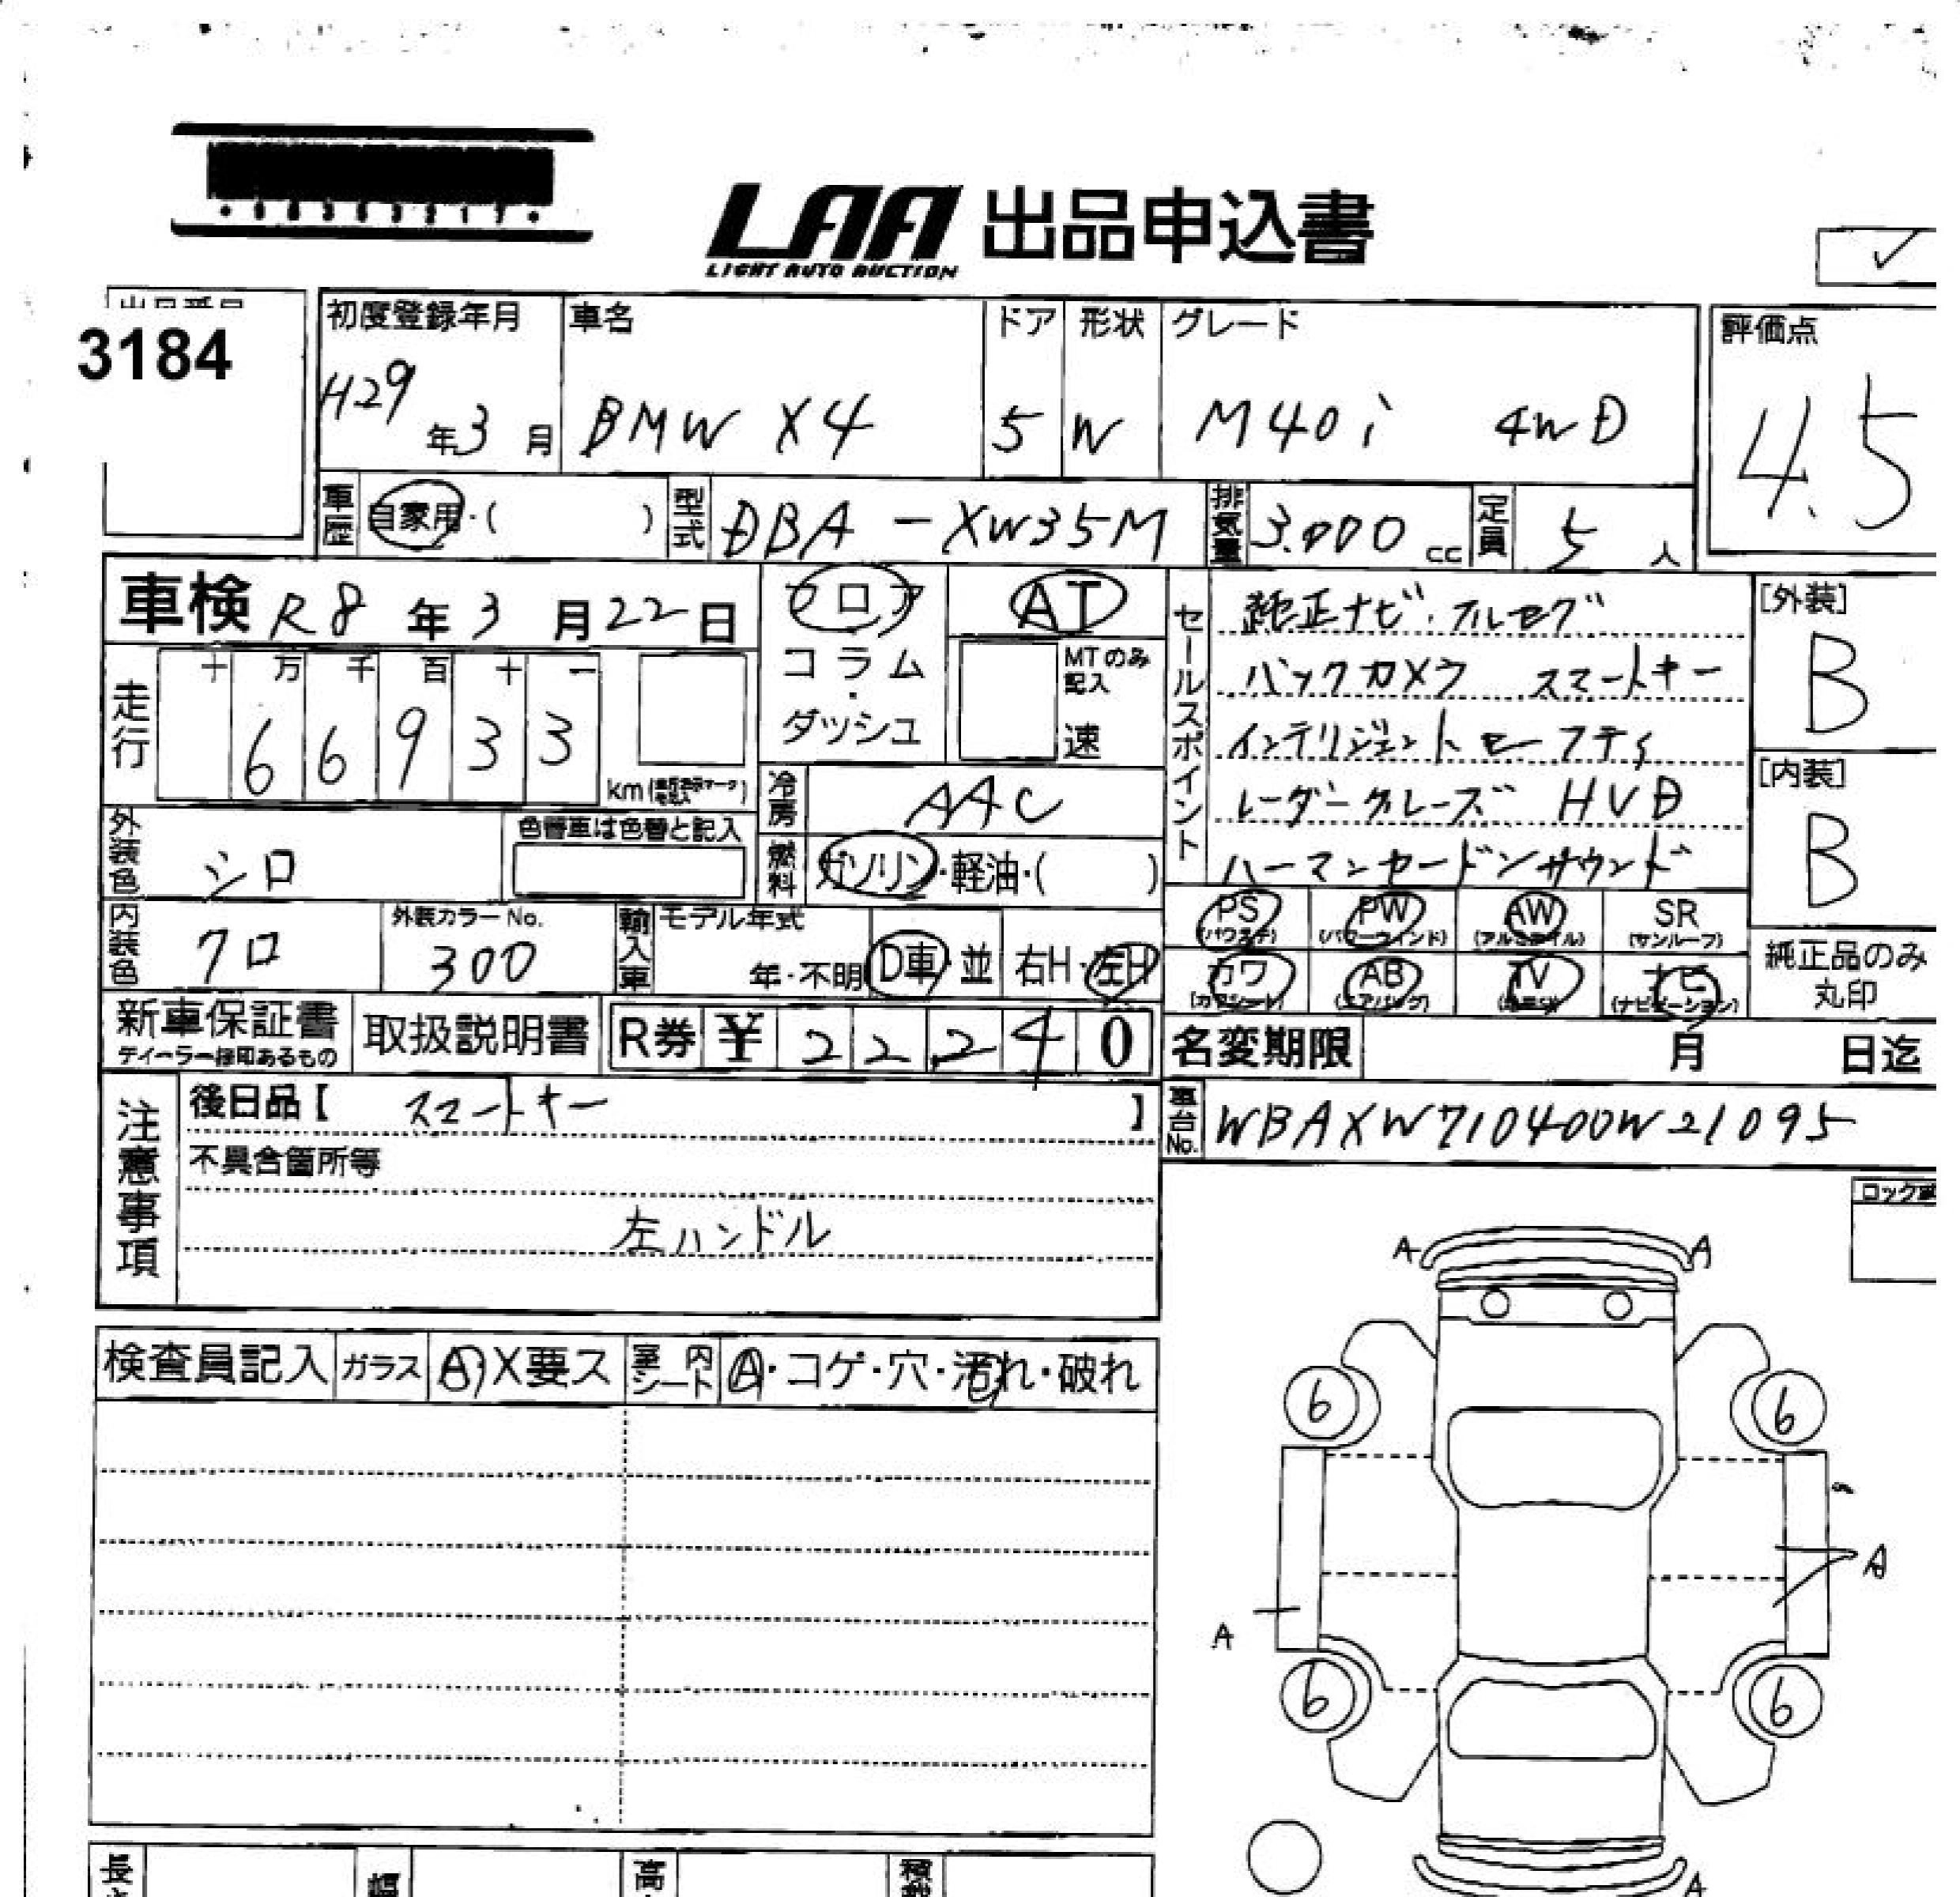 LAA 出品申込書
LIGHT AUTO AUCTION
✓
出品番号
3184
初度登録年月 車名 ドア 形状 グレード 評価点
H29年3月 BMW X4 5 W M40i 4WD 4.5
車歴 自家用・( ) 型式 DBA-XW35M 排気量 3.000 cc 定員 5人
車検 R8年3月22日
フロア
コラム
・
ダッシュ
AT
MTのみ
記入
速
走行 十 万 千 百 十 一
6 6 9 3 3
km
冷房 AAC
外装色 シロ
色替車は色替と記入
燃料 ガソリン・軽油・( )
内装色 クロ
外装カラーNo.
300
輸入車 モデル年式
年・不明 D車・並 右H・左H
セールスポイント
純正ナビ・フルセグ
バックカメラ スマートキー
インテリジェントセーフティ
レーダークルーズ HUD
ハーマンカードンサウンド
[外装]
B
[内装]
B
PS PW AW SR
(パワステ) (パワーウインド) (アルミホイル) (サンルーフ)
カワ AB TV ナビ
(カワシート) (エアバッグ) (ナビゲーション)
純正品のみ
丸印
新車保証書
ディーラー様印あるもの
取扱説明書
R券 ¥ 2 2 2 4 0
名変期限 月 日迄
注意事項
後日品【 スマートキー 】
不具合箇所等
左ハンドル
車台No. WBAXW710400W21095
検査員記入 ガラス A・X要ス 室内シート A・コゲ・穴・汚れ・破れ
A A
6 6
A
A
6 6
A
長 幅 高 積